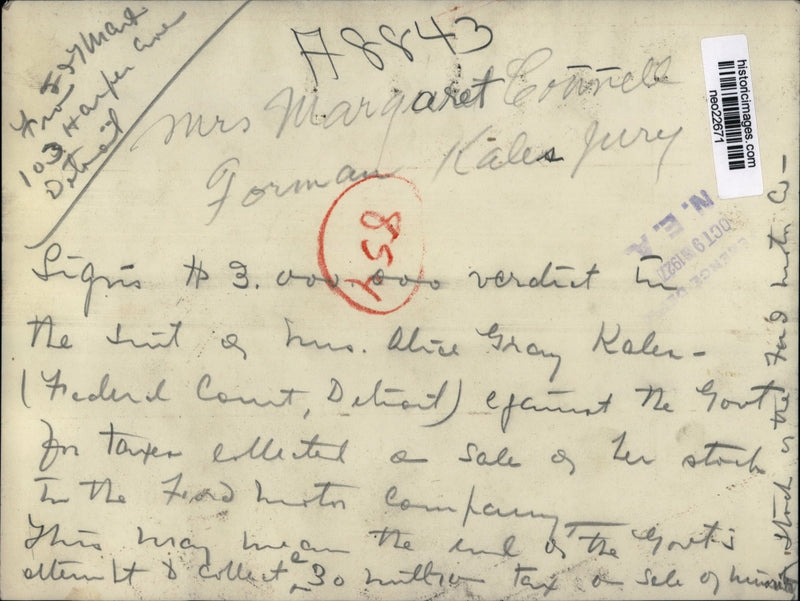 A8843
From
103 Harper ave
Detroit
Mrs Margaret Connell
Forman Kales Jury
854
historicimages.com
neo22671
N. E. A.
OCT 9 1927
Signs $3.000.000 verdict in
the suit of Mrs. Alice Gray Kales -
(Federal Court, Detroit) against the Govt
for taxes collected on sale of her stock
in the Ford Motor Company
This may mean the end of the Govt's
attempt to collect a 30 million tax on sale of minority
stock in the Ford Motor Co -